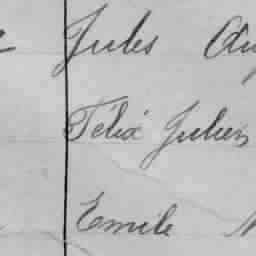 Jules
Félix Julien
Emile